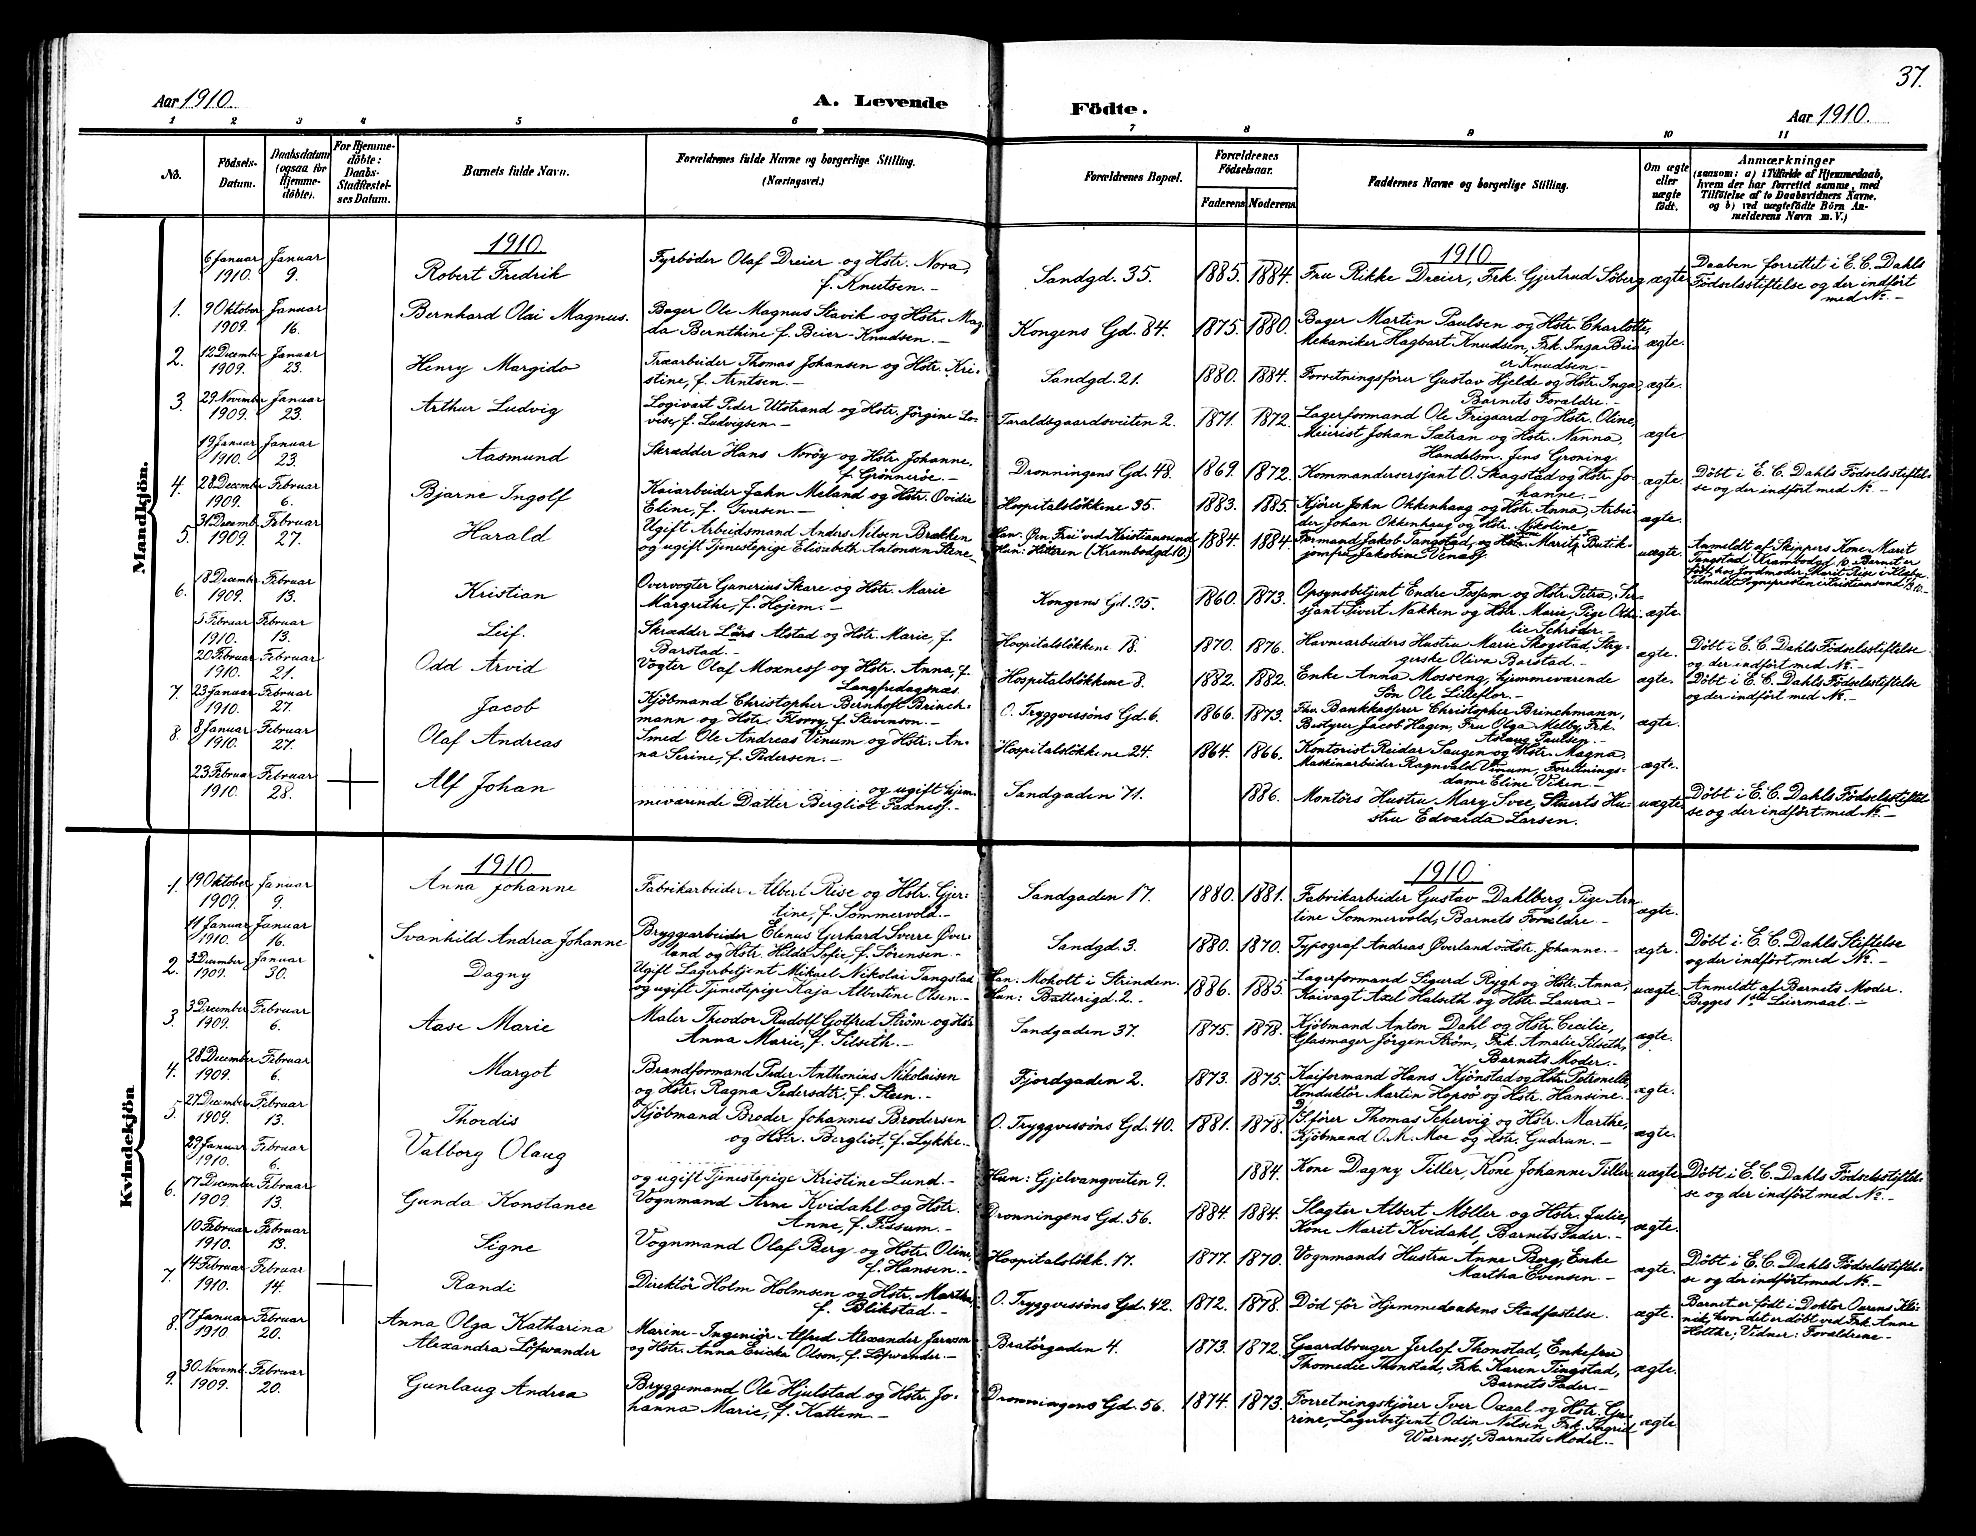 37.
Aar 1910.
A. Levende
Födte.
Aar 1910.
1 2 3 4 5 6 7 8 9 10 11
No.
Födsels-
Datum.
Daabsdatum
(ogsaa for
Hjemme-
döbte).
For Hjemme-
döbte:
Daabs-
Stadfæstel-
ses Datum.
Barnets fulde Navn.
Forældrenes fulde Navne og borgerlige Stilling.
(Næringsvei.)
Forældrenes Bopæl.
Forældrenes
Födselsaar.
Faderens
Moderens
Faddernes Navne og borgerlige Stilling.
Om ægte
eller
uægte
födt.
Anmærkninger
(saasom: a) i Tilfælde af Hjemmedaab,
hvem der har forrettet samme, med
Tilföielse af to Daabsvidners Navne.
og b) ved uægtefödte Börn An-
melderens Navn m. V.)
Mandkjön.
1910
1910
6 Januar 1910. Januar 9. Robert Fredrik
Fyrbøder Olaf Dreier og Hstr. Nora,
f. Knutsen.-
Sandgd. 35. 1885. 1884.
Fru Rikke Dreier, Frk. Gjertrud Soberg
ægte
Daaben forrettet i E. C. Dahls
Födselsstiftelse og der indfört
med No. -
1. 9 Oktober 1909. Januar 16. Bernhard Olai Magnus.
Bager Ole Magnus Stavik og Hstr. Mag
da Bernthine f. Beier-Knudsen.-
Kongens Gd. 84. 1875. 1880.
Bager Martin Paulsen og Hstr. Charlotte,
Mekaniker Hagbart Knudsen, Frk. Inga Bei-
er Knudsen -
ægte.
2. 12 December 1909. Januar 23. Henry Margido
Træarbeider Thomas Johansen og Hstr. Kri-
stine, f. Arntsen.-
Sandgd. 21. 1880. 1884.
Forretningsförer Gustav Hjelde og Hstr. Inga,
Barnets Forældre.-
ægte.
3. 29 November 1909. Januar 23. Arthur Ludvig
Logivært Peder Utstrand og Hstr. Jörgine Lo-
vise, f. Ludvigsen-
Taraldsgaardsveiten 2. 1871. 1872.
Lagerformand Ole Frigaard og Hstr. Oline,
Meierist Johan Sætran og Hstr. Nanna,
Handelsm. Jens Groning.
ægte
19 Januar 1910. Januar 23. Aasmund
Skrædder Hans Norøy og Hstr. Johanne,
f. Grönneröe.-
Dronningens Gd. 48. 1869. 1872.
Kommandersersjant O. Skagstad og Hstr. Jo-
hanne.-
ægte.
Döbt i E. C. Dahls Födselsstiftel-
se og der indfört med No. -
4. 28 December 1909. Februar 6. Bjarne Ingolf
Kaiarbeider Jahn Meland og Hstr. Ovidie
Eline, f. Iversen.-
Hospitalslökkene 35. 1883. 1885.
Kjörer John Okkenhaug og Hstr. Anna, Arbei-
der Johan Okkenhaug og Hstr. Nikoline
ægte.
5. 31 Decemb. 1909. Februar 27. Harald
Ugift Arbeidsmand Anders Nilsen Brækken
og ugift Tjenestepige Elisabeth Antonsen Stene
Han: Øen Frei ved Kristiansund
Hun: Hitteren (Krambodgd 10) 1884. 1884.
Formand Jakob Tangstad, og Hstr. Marit, Butik-
jomfru Jakobine Venaas.
uægte
Anmeldt af Skippers Kone Marit
Tangstad Krambodgd. 10. Barnet er
født hos Jordmoder Marit Rise i Klæbu
Tilmeldt Sogneprest en i Kristiansund
6. 18 December 1909. Februar 13. Kristian
Overvogter Gunerius Skare og Hstr. Marie
Margrethe, f. Hojem.-
Kongens Gd. 95. 1860. 1873.
Opsynsbetjent Endre Fossam og Hstr. Petra, Ser-
sjant Sivert Nakken og Hstr. Marie, Pige Othi-
lie Schröder.-
ægte.
5 Februar 1910. Februar 13. Leif.
Skrædder Lars Alstad og Hstr. Marie, f.
Barstad.-
Hospitalslökkene 18. 1870. 1876.
Havnearbeiders Hustru Marie Skogstad, Stry-
gerske Oliva Barstad.-
ægte.
Döbt i E. C. Dahls Födselsstiftelse
og der indfört med No. -
20 Februar 1910. Februar 21. Odd Arvid
Vogter Olaf Moxness og Hstr. Anna, f.
Langfredagsnæs.
Hospitalslökkene 8. 1882. 1882.
Enke Anna Mosseng, hjemmeværende
Sön Ole Lilleflor.-
ægte.
Döbt i E. C. Dahls Födselsstiftelse
og der indfört med No.
7. 23 Januar 1910. Februar 27. Jacob
Kjöbmand Christopher Bernhoft Brinch-
mann og Hstr. Florry f. Stevenson.-
O. Tryggvessöns Gd. 6. 1866. 1873.
Fru Bankkasserer Christopher Brinchmann,
Bestyrer Jacob Hagen, Fru Olga Melby, Frk.
Aslaug Paulsen.-
ægte.
8. 8 Januar 1910. Februar 27. Olaf Andreas
Smed Ole Andreas Vinum og Hstr. An-
na Serine, f. Pedersen.-
Hospitalslökkene 24. 1864. 1866.
Kontorist Reidar Saugen og Hstr. Magna,
Maskinarbeider Ragnvald Vinum, Forretnings-
dame Eline Vikin-
ægte.
23 Februar 1910. Februar 28. Alf Johan
og ugift hjem-
meværende Datter Bergliot Fadness.-
Sandgaden 71. 1886.
Montörs Hustru Mary Svee, Stuerts Hu-
stru Edvarda Larsen.
uægte
Döbt i E. C. Dahls Födselsstiftel-
se og der indfört med No. -
Kvindekjön
1910
1910
1. 19 Oktober 1909. Januar 9. Anna Johanne
Fabrikarbeider Albert Rise og Hstr. Gjer-
tine, f. Sommervold.-
Sandgaden 17. 1880. 1881.
Fabrikarbeider Gustav Dahlberg, Pige Arn-
tine Sommervold, Barnets Forældre-
ægte.
11 Januar 1910. Januar 16. Svanhild Andrea Johanne
Bryggearbeider Elenus Gerhard Sverre Øver
land og Hstr. Hilda Sofie, f. Sörensen.-
Sandgd. 3. 1880. 1870.
Typograf Andreas Øverland o Hstr. Johanne.-
ægte.
Döbt i E. C. Dahls Stiftelse
og der indfört med No. -
2. 3 December 1909. Januar 30. Dagny
Ugift Lagerbetjent Mikael Nikolai Tangstad
og ugift Tjenestepige Kaja Albertine Olsen-
Han: Moholt i Strinden.
Hun: Batterigd. 2.- 1886. 1885.
Lagerformand Sigurd Rygh og Hstr. Anna,
Kaivagt Axel Halseth og Hstr. Laura-
uægte
Anmeldt af Barnets Moder.
Begges 1ste Leiermaal-
3. 3 December 1909. Februar 6. Aase Marie
Maler Theodor Rudolf Gotfred Ström og Hstr
Anna Marie, f. Tilseth.-
Sandgaden 37. 1875. 1878.
Kjöbmand Anton Dahl og Hstr. Cecilie,
Glasmager Jörgen Ström, Frk. Amalie Tilseth,
Barnets Moder.-
ægte.
4. 28 December 1909. Februar 6. Margot
Brandformand Peder Anthonius Nikolaisen
og Hstr. Ragna Pedersdtr, f. Steen.-
Fjordgaden 2. 1873. 1875.
Kaiformand Hans Kjönstad og Hstr. Petronelle,
Konduktör Martin Hopsö og Hstr. Hansine.
ægte.
5. 27 December 1909. Februar 13. Thordis
Kjöbmand Broder Johannes Brodersen
og Hstr. Bergliot, f. Lykke.-
O. Tryggvessöns Gd. 40. 1881. 1878.
D/S. förer Thomas Schervig og Hstr. Marthe,
Kjöbmand O. M. Moe og Hstr. Gudrun.-
ægte.
29 Januar 1910. Februar 6. Valborg Olaug
og ugift Tjenestepige Kristine Lund.-
Hun: Gjelvangveiten 9. 1884.
Kone Dagny Tiller, Kone Johanne Tiller
uægte
Döbt i E. C. Dahls Födselsstiftel-
se og der indfört med No. -
6. 17 December 1909. Februar 13. Gunda Konstance
Vognmand Arne Kvidahl og Hstr.
Anne, f. Fossum.-
Dronningens Gd. 56. 1884. 1884.
Slagter Albert Möller og Hstr. Julie,
Kone Marit Kvidahl, Barnets Fader.-
ægte.
10 Februar 1910. Februar 13. Signe
Vognmand Olaf Berg og Hstr. Oline,
f. Hansen.-
Hospitalslökk. 17. 1877. 1870.
Vognmands Hustru Anne Berg, Enke
Martha Evensen.-
ægte.
Döbt i E. C. Dahls Födselsstiftel-
se og der indfört med No. -
7. 14 Februar 1910. Februar 14. Randi
Direktör Holm Holmsen og Hstr. Martha,
f. Blikstad.-
O. Tryggvessöns Gd. 42. 1872. 1878.
Död för Hjemmedaabens Stadfæstelse.
ægte.
Barnet er födt i Doktor Ourens Kli-
nik, hvor det er döbt ved Frk. Anne
Holthe; Vidner: Forældrene-
8. 7 Januar 1910 Februar 20. Anna Olga Katharina
Alexandra Löfwander
Marine-Ingeniör Alfred Alexander Jansson
og Hstr. Anna Ericka Olson, f. Löfwander.-
Bratörgaden 4. 1873. 1872.
Gaardbruger Jerlof Thonstad, Enkefru
Thomedie Thonstad, Frk. Karen Tingstad,
Barnets Fader.-
ægte.
9. 30 Novemb. 1909. Februar 20. Gunlaug Andrea
Bryggemand Ole Hjulstad og Hstr. Jo-
hanna Marie, f. Kattem.-
Dronningens Gd. 56. 1874. 1873.
Forretningskjörer Iver Oxaal og Hstr. Gu-
rine, Lagerbetjent Odin Nilsen, Frk. Ingrid
Værness, Barnets Moder.-
ægte